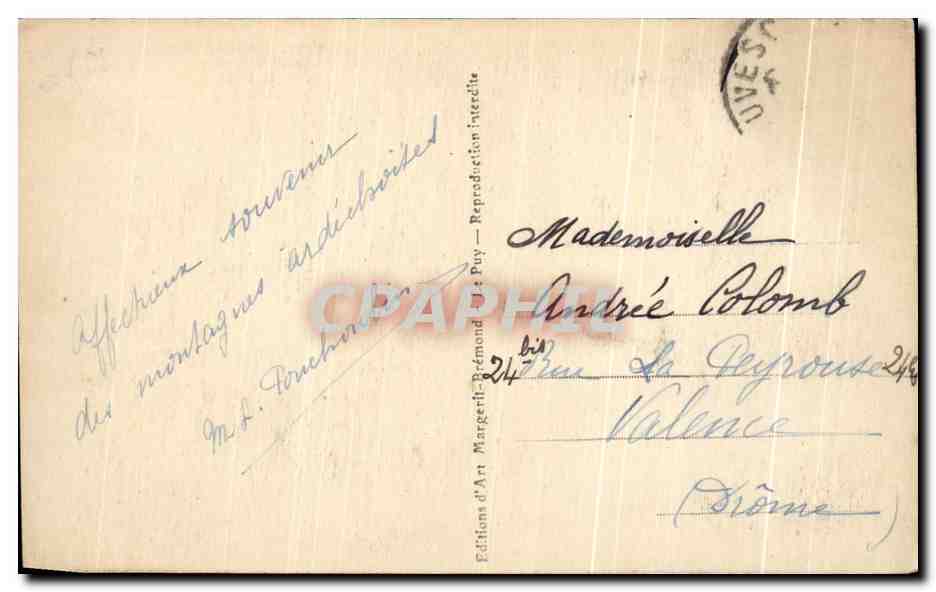 Affectueux souvenir
des montagnes ardéchoises
M. L.
Editions d'Art Margerit-Brémond Le Puy — Reproduction interdite
UVES
Mademoiselle
Andrée Colomb
24 bis Rue La Peyrouse 24
Valence
(Drôme)
CPAPHIL